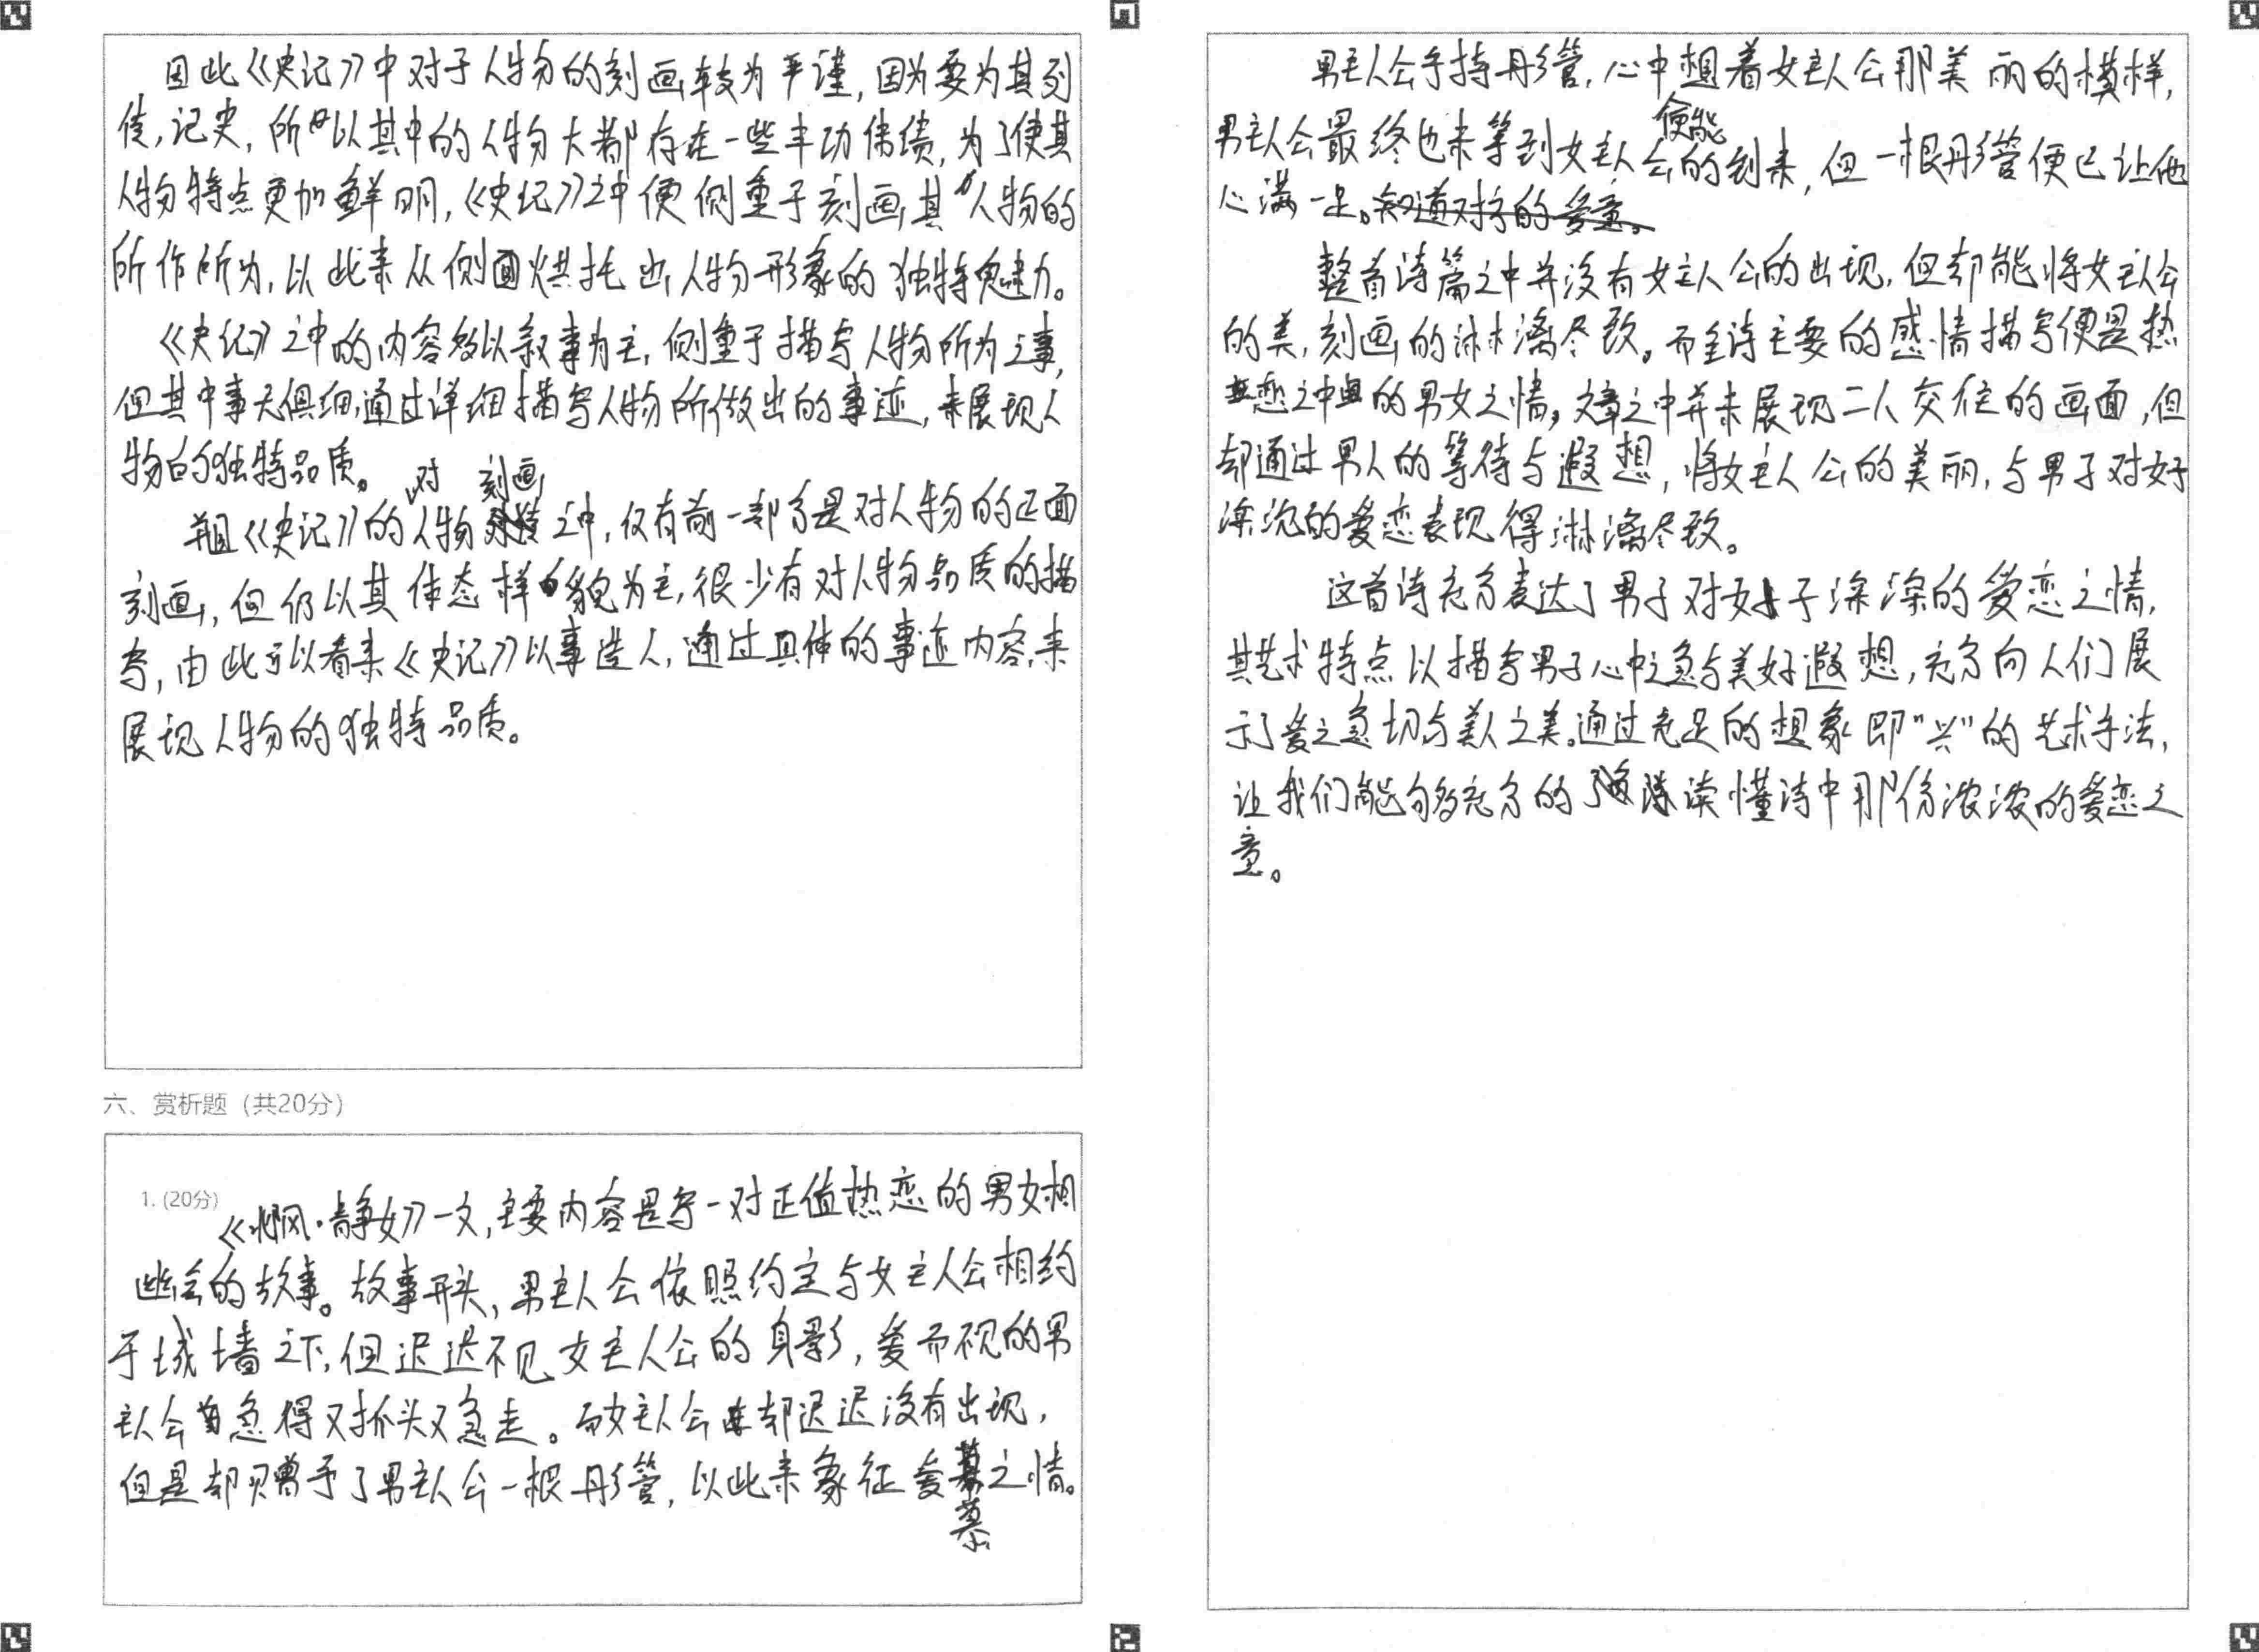 因此《史记》中对于人物的刻画较为严谨，因为要为其列
传，记史，所以其中的人物大都存在一些丰功伟绩，为了使其
人物特点更加鲜明，《史记》之中便侧重于刻画其人物的
所作所为，以此来从侧面烘托出人物形象的独特魅力。
《史记》之中的内容多以叙事为主，侧重于描写人物所为之事，
但其中事无俱细，通过详细描写人物所做出的事迹，来展现人
物的独特品质。
并且《史记》的对人物刻画之中，仅有前一部分是对人物的正面
刻画，但仍以其体态样貌为主，很少有对人物品质的描
写，由此可以看来《史记》以事造人，通过具体的事迹内容，来
展现人物的独特品质。
六、赏析题（共20分）
1. (20分)
《邶风·静女》一文，主要内容是写一对正值热恋的男女相
幽会的故事。故事开头，男主人公依照约定与女主人公相约
于城墙之下，但迟迟不见女主人公的身影，爱而不现的男
主人公急得又抓头又急走。而女主人公却迟迟没有出现，
但是却赠予了男主人公一根彤管，以此来象征爱慕之情。
男主人公手持彤管，心中想着女主人公那美丽的模样，
男主人公最终也未等到女主人公的到来，但一根彤管便已让他
心满一足。
整首诗篇之中并没有女主人公的出现，但却能将女主人公
的美，刻画的淋漓尽致。而全诗主要的感情描写便是热
恋之中的男女之情，文章之中并未展现二人交往的画面，但
却通过男人的等待与遐想，将女主人公的美丽，与男子对好
深沉的爱恋表现得淋漓尽致。
这首诗充分表达了男子对女子深深的爱恋之情，
其艺术特点以描写男子心中之急与美好遐想，充分向人们展
示了爱之急切与美人之美。通过充足的想象即"兴"的艺术手法，
让我们能够充分的读懂诗中那份浓浓的爱恋之
意。